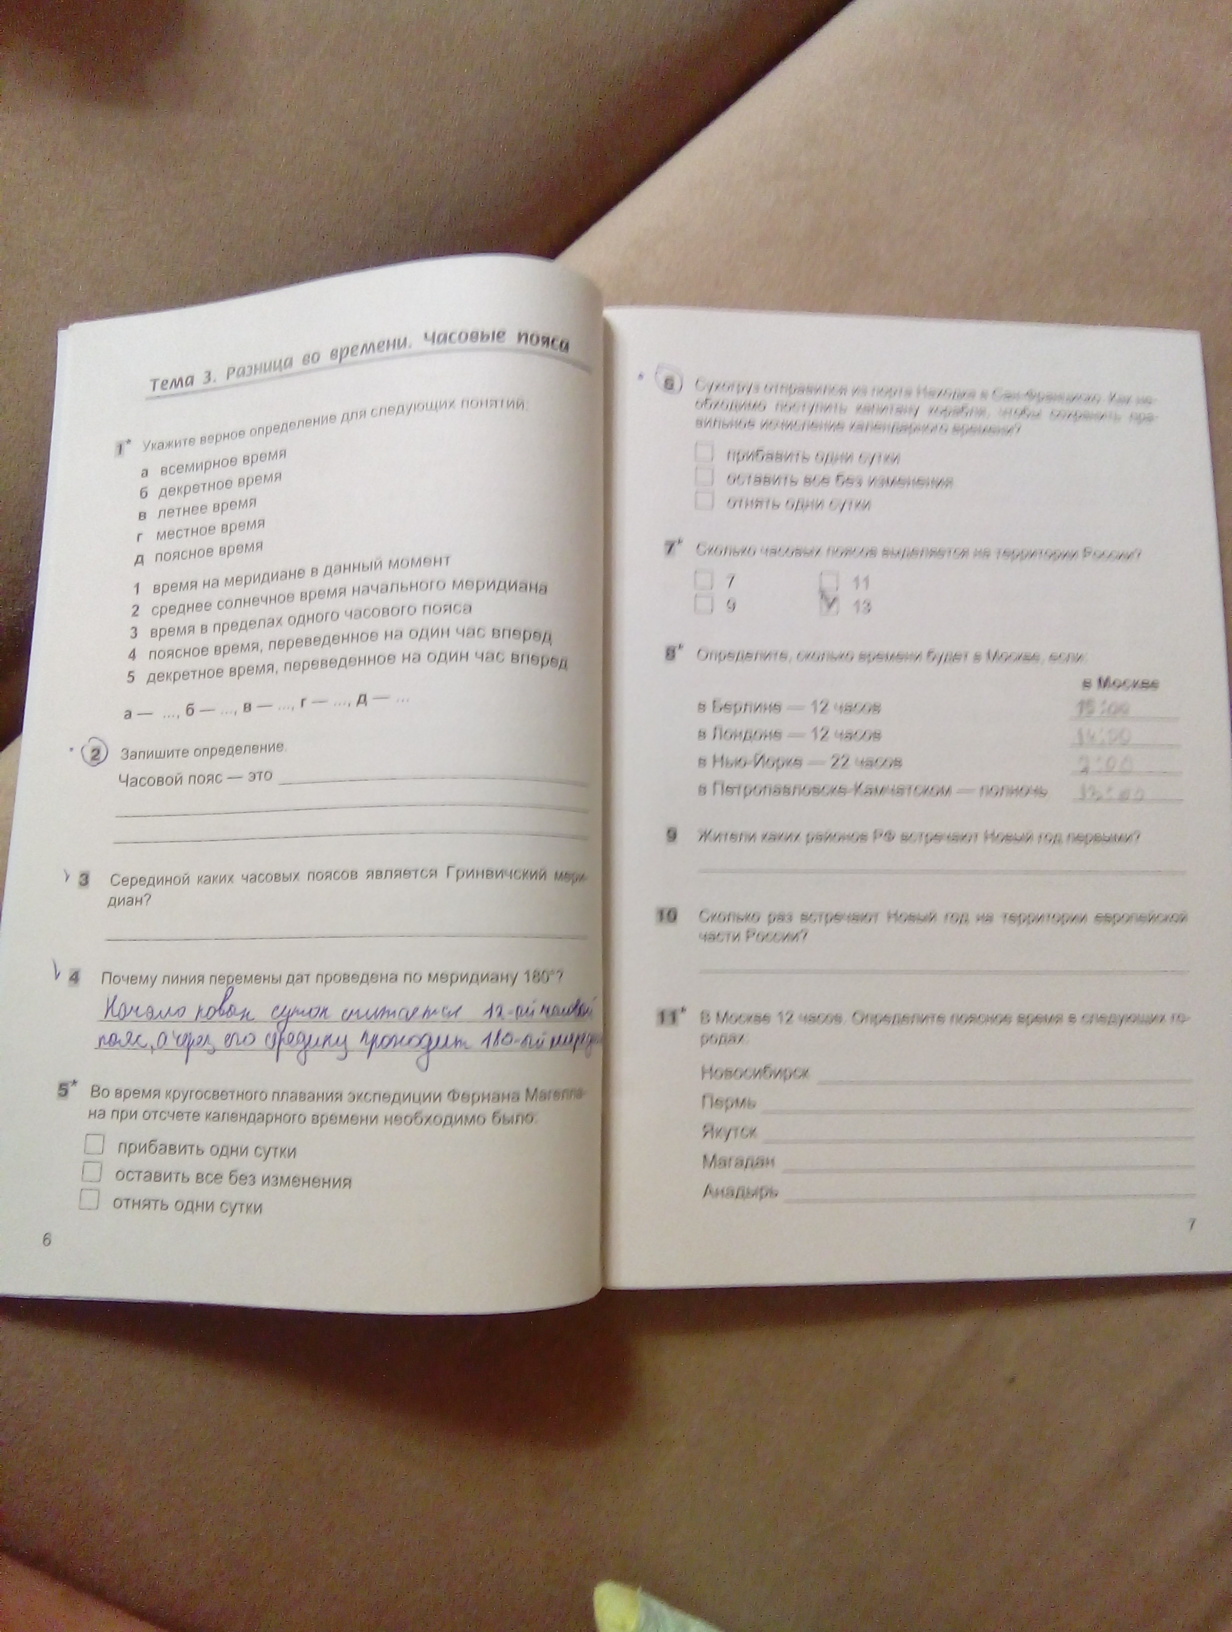 Тема 3. Разница во времени. Часовые пояса
1* Укажите верное определение для следующих понятий.
а всемирное время
б декретное время
в летнее время
г местное время
д поясное время
1 время на меридиане в данный момент
2 среднее солнечное время начального меридиана
3 время в пределах одного часового пояса
4 поясное время, переведенное на один час вперед
5 декретное время, переведенное на один час вперед
а — ..., б — ..., в — ..., г — ..., д — ...
2 Запишите определение.
Часовой пояс — это
3 Серединой каких часовых поясов является Гринвичский мери-
диан?
4 Почему линия перемены дат проведена по меридиану 180°?
Начало новых суток считается 12-ый часовой
пояс, а через его средину проходит 180-ый
5* Во время кругосветного плавания экспедиции Фернана Магелла-
на при отсчете календарного времени необходимо было:
прибавить одни сутки
оставить все без изменения
отнять одни сутки
6
6 Сухогруз отправился из порта Находка в Сан-Франциско. Как не-
обходимо поступить капитану корабля, чтобы сохранить пра-
вильное исчисление календарного времени?
прибавить одни сутки
оставить все без изменения
отнять одни сутки
7* Сколько часовых поясов выделяется на территории России?
7 11
9 13
8* Определите, сколько времени будет в Москве, если:
в Москве
в Берлине — 12 часов 15:00
в Лондоне — 12 часов 14:00
в Нью-Йорке — 22 часов 2:00
в Петропавловске-Камчатском — полночь
9 Жители каких районов РФ встречают Новый год первыми?
10 Сколько раз встречают Новый год на территории европейской
части России?
11* В Москве 12 часов. Определите поясное время в следующих го-
родах:
Новосибирск
Пермь
Якутск
Магадан
Анадырь
7